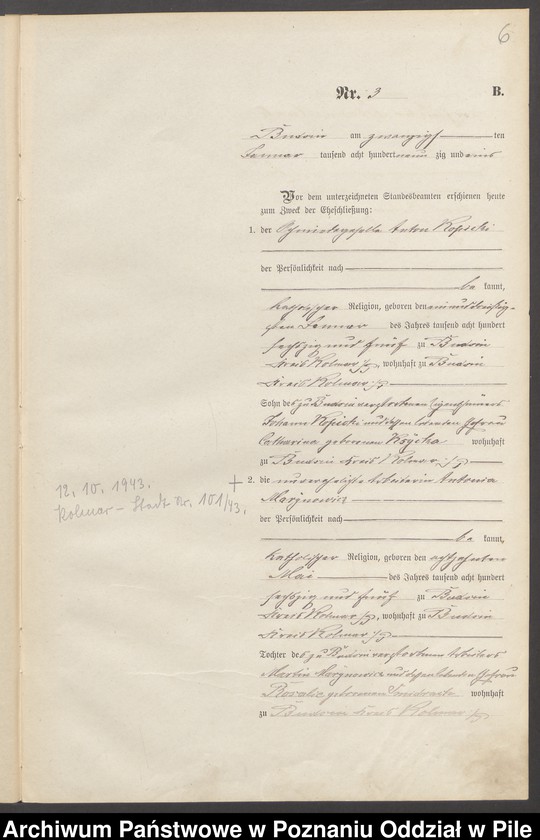 6
Nr. 3 B.
Budsin am zwanzigsten
Januar tausend acht hundert neun zig und eins
Vor dem unterzeichneten Standesbeamten erschienen heute
zum Zweck der Eheschließung:
1. der Schmiedegeselle Anton Kopicki
der Persönlichkeit nach
be kannt,
katholischer Religion, geboren den ein und dreißig-
sten Januar des Jahres tausend acht hundert
sechszig und fünf zu Budsin
Kreis Kolmar i/P, wohnhaft zu Budsin
Kreis Kolmar i/P
Sohn des zu Budsin verstorbenen Eigenthümers
Johann Kopicki und dessen Ehefrau
Catharina geborenen wohnhaft
zu Budsin Kreis Kolmar i/P
2. die unverehelichte Arbeiterin Antonia
Marynowicz
der Persönlichkeit nach
be kannt,
katholischer Religion, geboren den achtzehnten
Mai des Jahres tausend acht hundert
sechszig und fünf zu Budsin
Kreis Kolmar i/P, wohnhaft zu Budsin
Kreis Kolmar i/P
Tochter des zu Budsin verstorbenen Arbeiters
Martin Marynowicz und dessen lebenden Ehefrau
Rosalie geborenen wohnhaft
zu Budsin Kreis Kolmar i/P
+
12. 10. 1943.
Kolmar - Stadt Nr. 101/43.
Archiwum Państwowe w Poznaniu Oddział w Pile